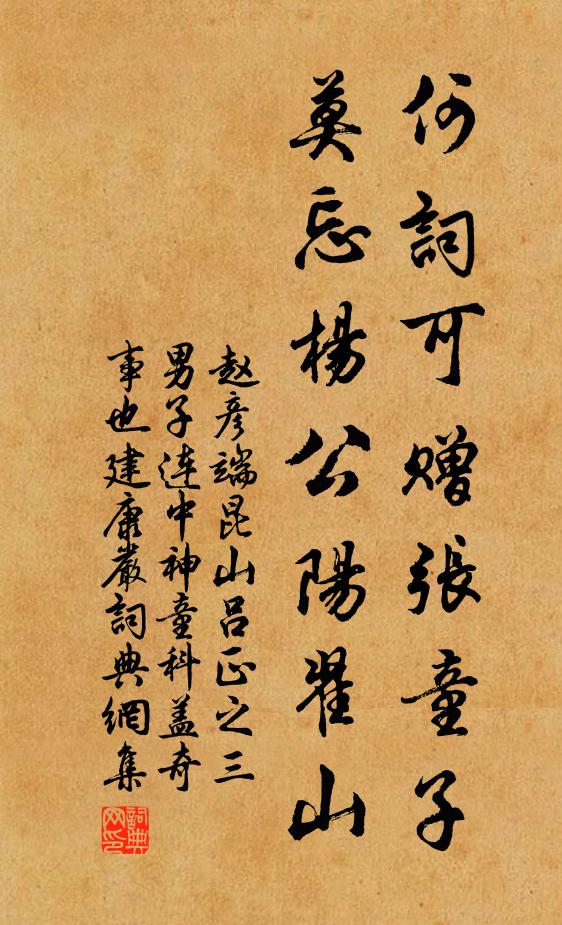 何詞可贈張童子
莫忘楊公陽翟山
赵彥端昆山吕正之三
男子連中神童科蓋奇
事也建康嚴詞典網集
詞典网印